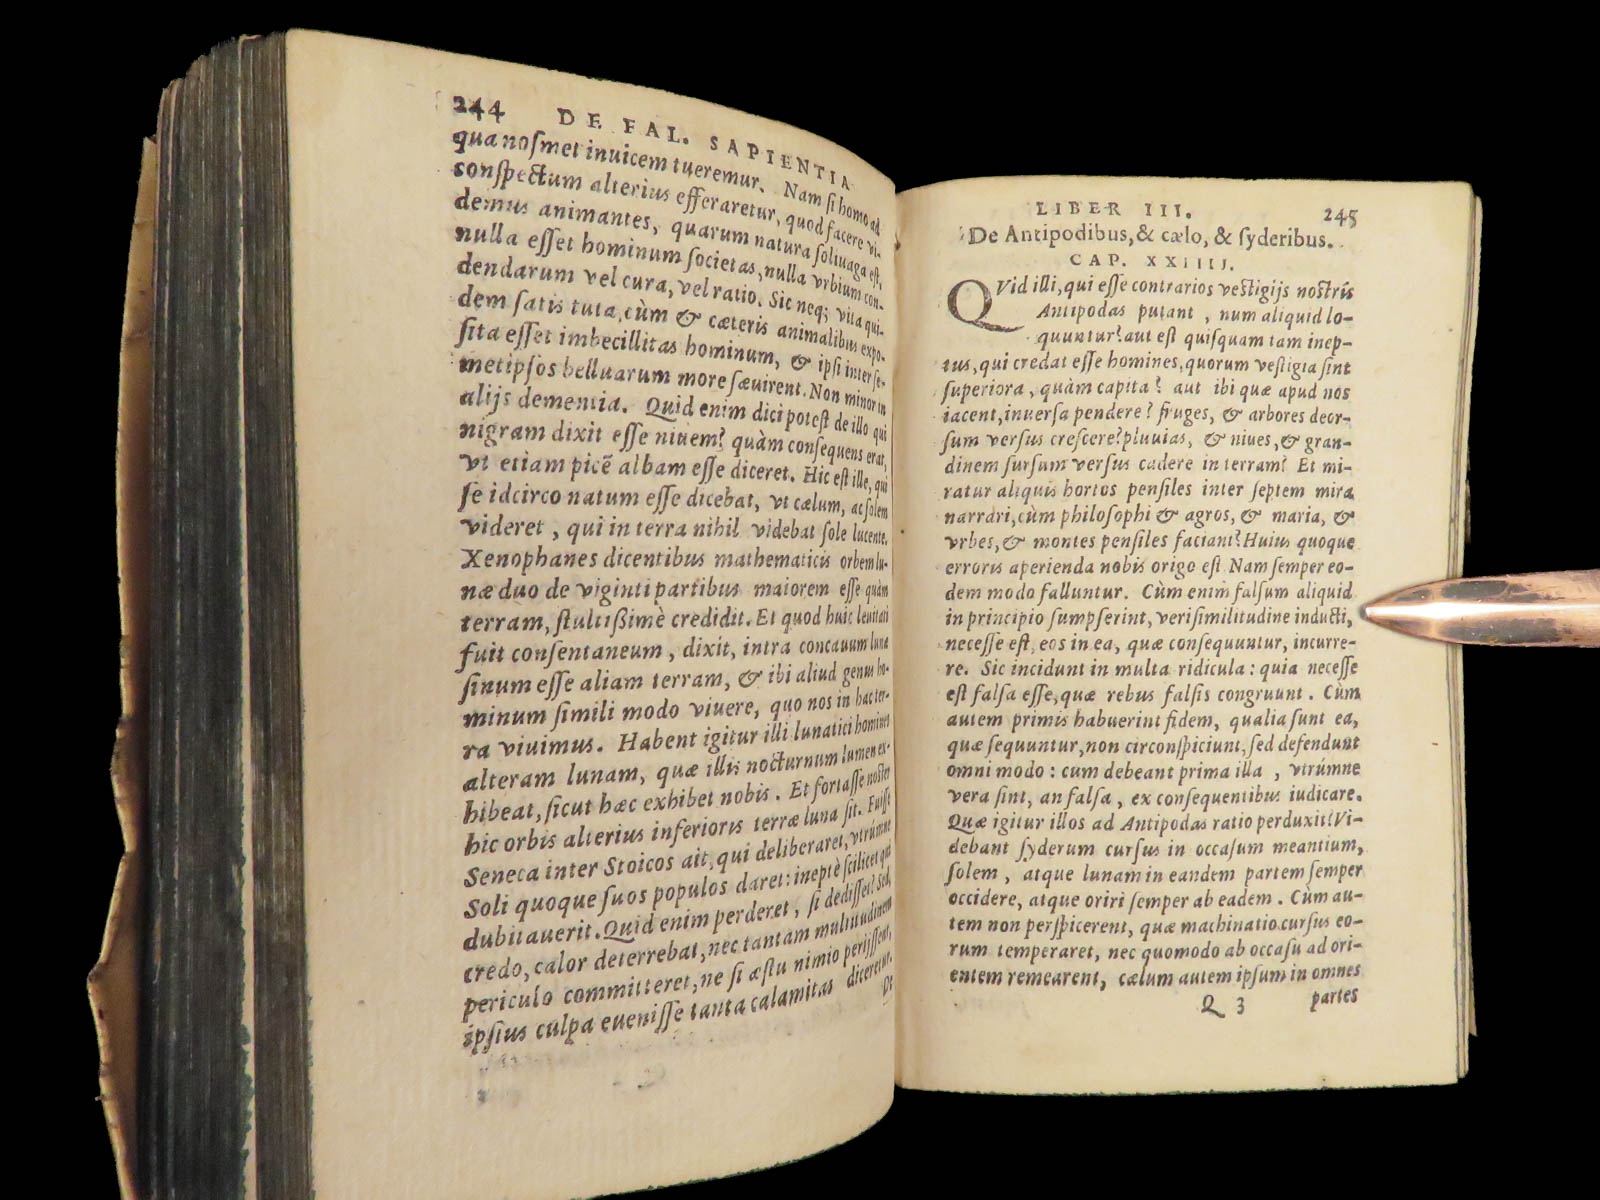 244 DE FAL. SAPIENTIA
qua noſmet inuicem tueremur. Nam ſi homo ad
conſpectum alterius efferaretur, quod facere vi-
demus animantes, quarum natura ſoliuaga eſt,
nulla eſſet hominum ſocietas, nulla vrbium con-
dendarum vel cura, vel ratio. Sic neq; vita qui-
dem ſatis tuta, cùm & cæteris animalibus expo-
ſita eſſet imbecillitas hominum, & ipſi inter ſe-
metipſos belluarum more ſæuirent. Non minor in
alijs dementia. Quid enim dici poteſt de illo qui
nigram dixit eſſe niuem? quàm conſequens erat,
vt etiam picẽ albam eſſe diceret. Hic eſt ille, qui
ſe idcirco natum eſſe dicebat, vt cælum, ac ſolem
videret, qui in terra nihil videbat ſole lucente.
Xenophanes dicentibus mathematicis orbem lu-
næ duo de viginti partibus maiorem eſſe quàm
terram, ſtultißimè credidit. Et quod huic leuitati
fuit conſentaneum, dixit, intra concauum lunæ
ſinum eſſe aliam terram, & ibi aliud genus ho-
minum ſimili modo viuere, quo nos in hac ter-
ra viuimus. Habent igitur illi lunatici homines
alteram lunam, quæ illis nocturnum lumen ex-
hibeat, ſicut hæc exhibet nobis. Et fortaſſe noſter
hic orbis alterius inferioris terræ luna ſit. Fuiſſe
Seneca inter Stoicos ait, qui deliberaret, vtrúmne
Soli quoque ſuos populos daret: ineptè ſcilicet qui
dubitauerit. Quid enim perderet, ſi dediſſet? Sed,
credo, calor deterrebat, nec tantam multitudinem
periculo committeret, ne ſi æſtu nimio perijſſent,
ipſius culpa eueniſſe tanta calamitas diceretur.
De
LIBER III. 245
De Antipodibus, & cælo, & ſyderibus.
CAP. XXIIII.
QVid illi, qui eſſe contrarios veſtigijs noſtris
Antipodas putant, num aliquid lo-
quuntur? aut eſt quiſquam tam inep-
tus, qui credat eſſe homines, quorum veſtigia ſint
ſuperiora, quàm capita? aut ibi quæ apud nos
iacent, inuerſa pendere? fruges, & arbores deor-
ſum verſus creſcere? pluuias, & niues, & gran-
dinem ſurſum verſus cadere in terram? Et mi-
ratur aliquis hortos penſiles inter ſeptem mira
narrari, cùm philoſophi & agros, & maria, &
vrbes, & montes penſiles faciant? Huius quoque
erroris aperienda nobis origo eſt. Nam ſemper eo-
dem modo falluntur. Cùm enim falſum aliquid
in principio ſumpſerint, veriſimilitudine inducti,
neceſſe eſt, eos in ea, quæ conſequuntur, incurre-
re. Sic incidunt in multa ridicula: quia neceſſe
eſt falſa eſſe, quæ rebus falſis congruunt. Cùm
autem primis habuerint fidem, qualia ſunt ea,
quæ ſequuntur, non circonſpiciunt, ſed defendunt
omni modo: cum debeant prima illa, vtrúmne
vera ſint, an falſa, ex conſequentibus iudicare.
Quæ igitur illos ad Antipodas ratio perduxit? Vi-
debant ſyderum curſus in occaſum meantium,
ſolem, atque lunam in eandem partem ſemper
occidere, atque oriri ſemper ab eadem. Cùm au-
tem non perſpicerent, quæ machinatio curſus eo-
rum temperaret, nec quomodo ab occaſu ad ori-
entem remearent, cælum autem ipſum in omnes
Q 3 partes